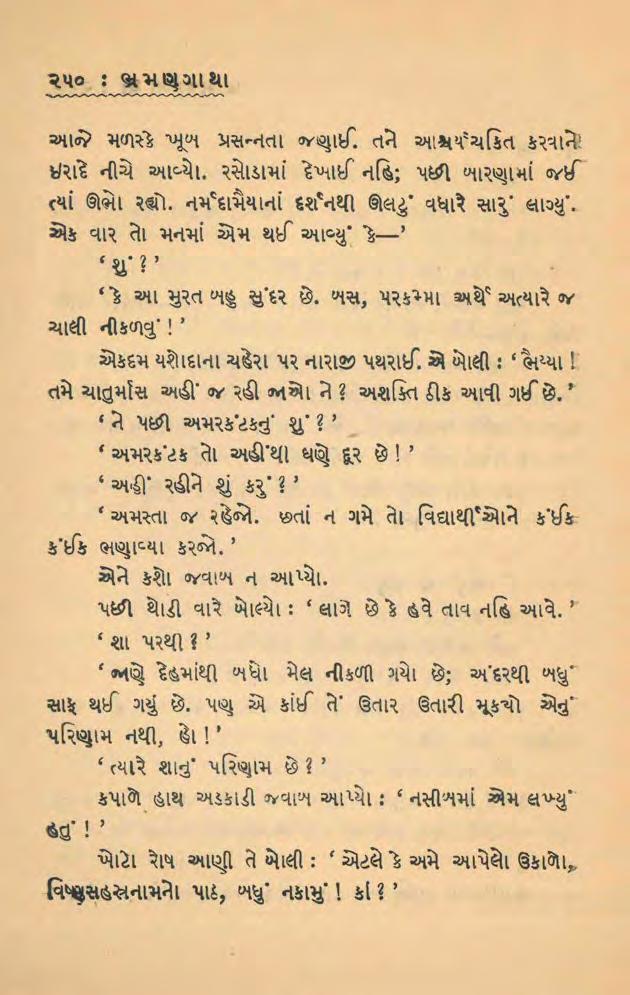 ૨૫૦ : ભ્રમણગાથા
આજે મળસ્કે ખૂબ પ્રસન્નતા જણાઈ. તને આશ્ચર્યચકિત કરવાને
ઇરાદે નીચે આવ્યો. રસોડામાં દેખાઈ નહિ; પછી બારણામાં જઈ
ત્યાં ઊભો રહ્યો. નર્મદામૈયાનાં દર્શનથી ઊલટું વધારે સારું લાગ્યું.
એક વાર તો મનમાં એમ થઈ આવ્યું કે—’
‘ શું ? ’
‘ કે આ મુરત બહુ સુંદર છે. બસ, પરકમ્મા અર્થે અત્યારે જ
ચાલી નીકળવું ! ’
એકદમ યશોદાના ચહેરા પર નારાજી પથરાઈ. એ બોલી : ‘ ભૈય્યા !
તમે ચાતુર્માસ અહીં જ રહી જાઓ ને ? અશક્તિ ઠીક આવી ગઈ છે. ’
‘ ને પછી અમરકંટકનું શું ? ’
‘ અમરકંટક તો અહીંથી ઘણે દૂર છે ! ’
‘ અહીં રહીને શું કરું ? ’
‘ અમસ્તા જ રહેજો. છતાં ન ગમે તો વિદ્યાર્થીઓને કંઈક
કંઈક ભણાવ્યા કરજો. ’
એને કશો જવાબ ન આપ્યો.
પછી થોડી વારે બોલ્યો : ‘ લાગે છે કે હવે તાવ નહિ આવે. ’
‘ શા પરથી ? ’
‘ જાણે દેહમાંથી બધો મેલ નીકળી ગયો છે; અંદરથી બધું
સાફ થઈ ગયું છે. પણ એ કાંઈ તેં ઉતાર ઉતારી મૂક્યો એનું
પરિણામ નથી, હો ! ’
‘ ત્યારે શાનું પરિણામ છે ? ’
કપાળે હાથ અડકાડી જવાબ આપ્યો : ‘ નસીબમાં એમ લખ્યું
હતું ! ’
ખોટો રોષ આણી તે બોલી : ‘ એટલે કે અમે આપેલો ઉકાળો,
વિષ્ણુસહસ્રનામનો પાઠ, બધું નકામું ! કાં ? ’